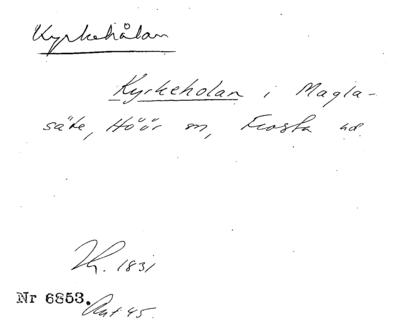 Kyrkehålan
Kyrkeholan i Magla-
säte, Höör sn, Frosta hd
1831
Nr 6853.
Ant 45.